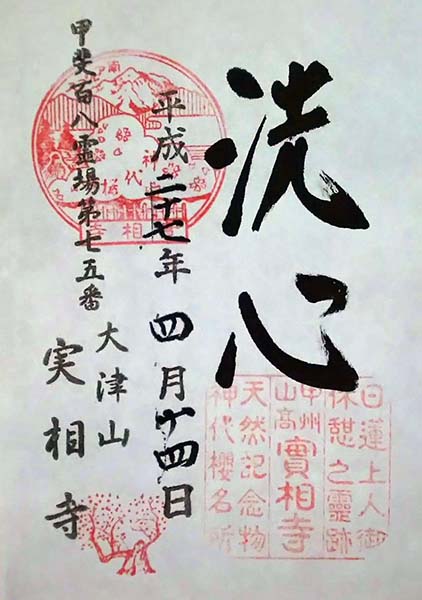 洗心
平成二十七年四月十四日
甲斐百八霊場第七五番
大津山
実相寺
日蓮上人御
休憩之靈跡
甲州
山高
實相寺
天然記念物
神代櫻名所